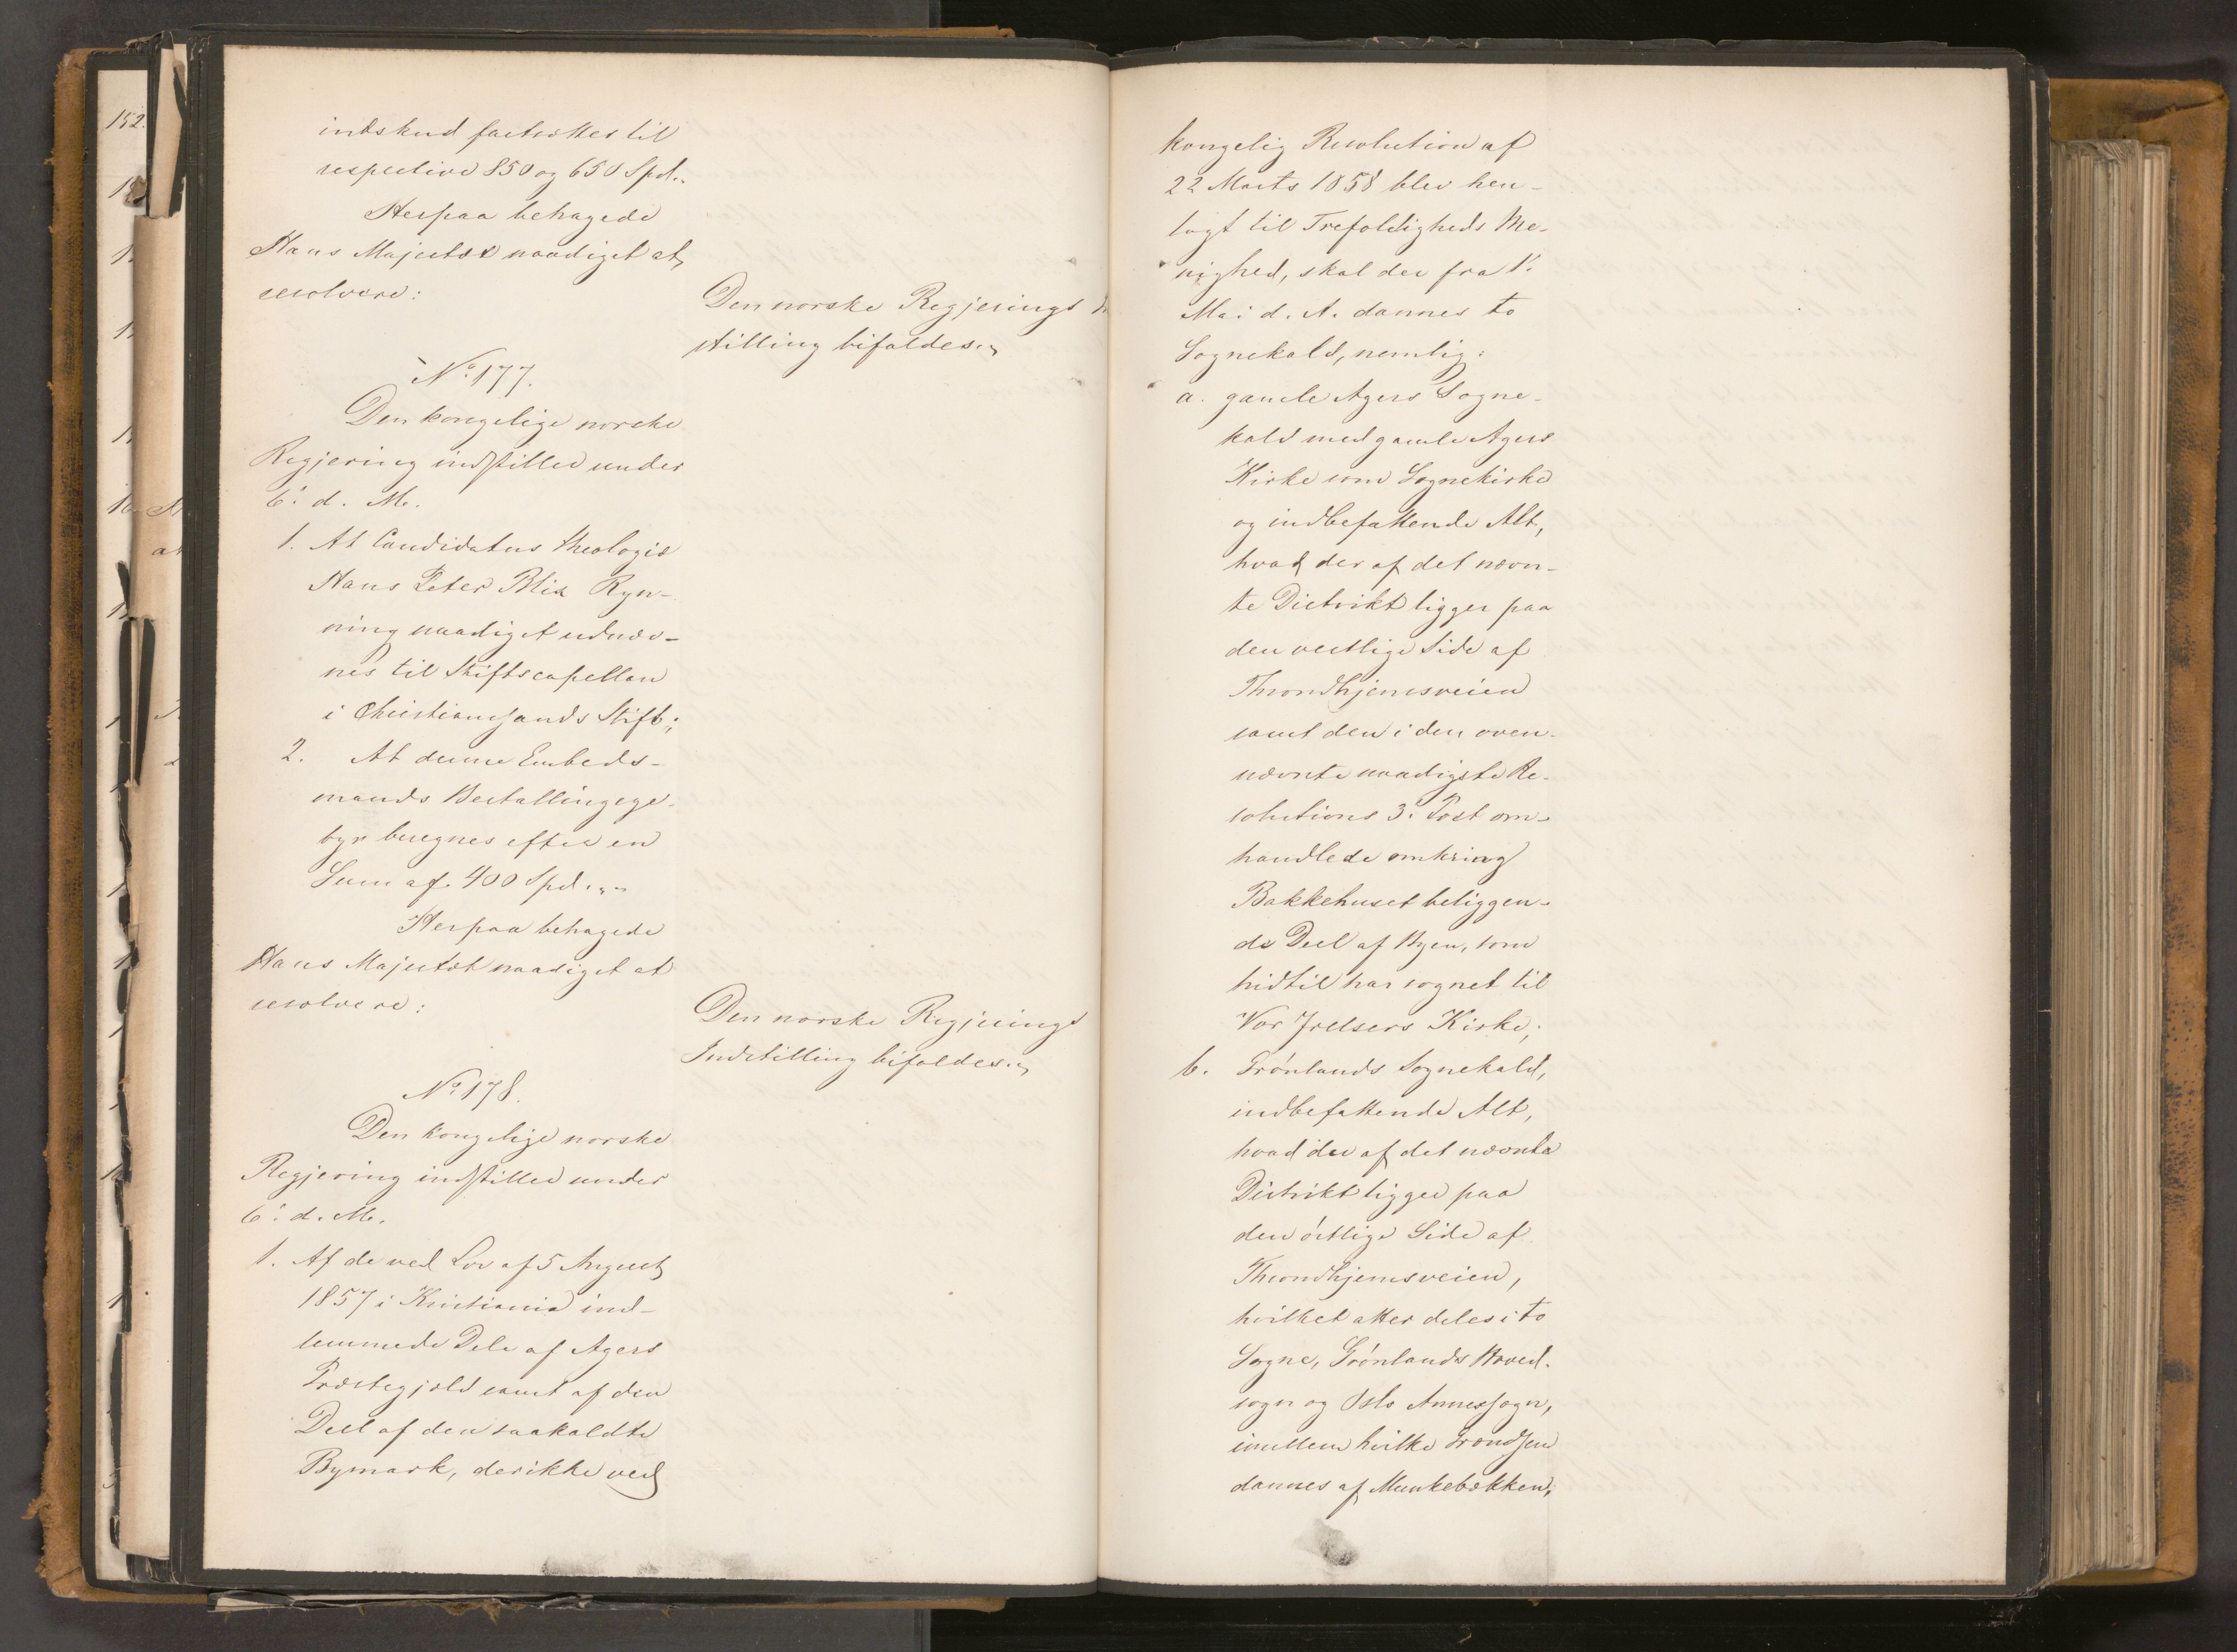 indskud fastsættes til
respective 850 og 650 Spd.
Herpaa behagede
Hans Majestæt naadigst at
resolvere:
Den norske Regjerings In
stilling bifaldes.
No 177.
Den kongelige norske
Regjering indstilled under
6. d. M.
1. At Candidatus theologiæ
Hans Peter Blix Ryn-
ning naadigst udnæv-
nes til Stiftscapellan
i Christiansands Stift;
2. At denne Embeds-
mands Bestallingsge-
byr beregnes efter en
Sum af 400 Spd.
Herpaa behagede
Hans Majestæt naadigst at
resolvere:
Den norske Regjerings
Indstilling bifaldes.
No 178.
Den kongelige norske
Regjering indstilled under
6. d. M.
1. Af de ved Lov af 5 August
1857 i Kristiania ind-
lemmede Dele af Agers
Præstegjæld samt af den
Deel af den saakaldte
Bymark, der ikke ved
kongelig Resolution af
22 Marts 1858 blev hen-
lagt til Trefoldigheds Me-
nighed, skal der fra 1.
Mai d. A. dannes to
Sognekald, nemlig:
a. gamle Agers Sogne-
kald med gamle Agers
Kirke som Sognekirke
og indbefattende Alt,
hvad der af det nævn-
te Distrikt ligger paa
den vestlige Side af
Throndhjemsveien
samt den i den oven-
nævnte naadigste Re-
solutions 3. Post om-
handlede omkring
Bakkehuset beliggen-
de Deel af Byen, som
hidtil har sognet til
Vor Frelsers Kirke;
b. Grønlands Sognekald,
indbefattende Alt,
hvad der af det nævnte
Distrikt ligger paa
den østlige Side af
Throndhjemsveien,
hvilket atter deles i to
Sogne, Grønlands Hoved-
sogn og Oslo Annexsogn,
imellem hvilke Grændsen
dannes af Munkebækken;